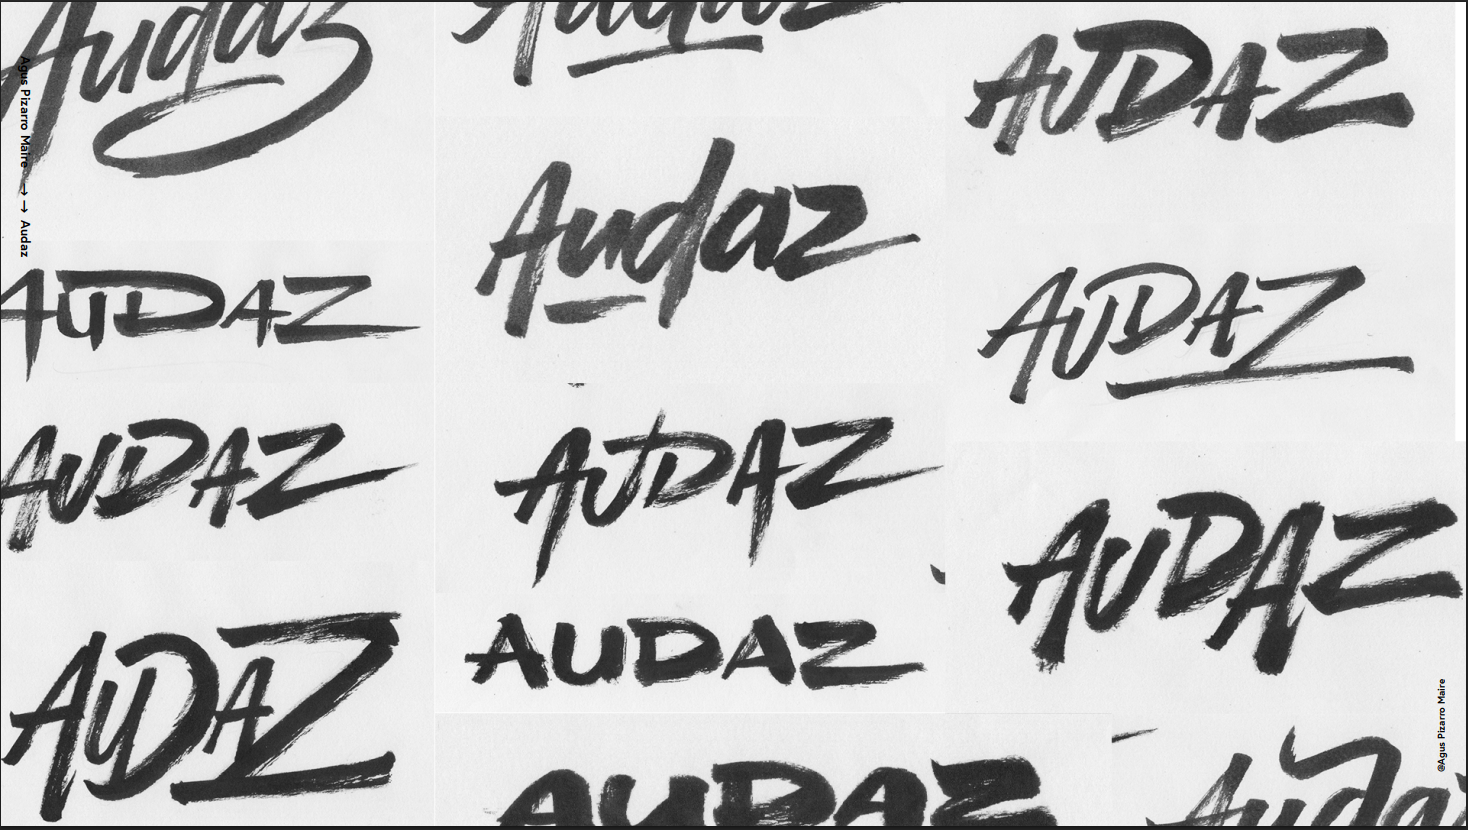 Audaz
Agus Pizarro Maire → → Audaz
AUDAZ
AUDAZ
AUDAZ
Audaz
Audaz
AUDAZ
AUDAZ
AUDAZ
AUDAZ
AUDAZ
AUDAZ
Audaz
@Agus Pizarro Maire